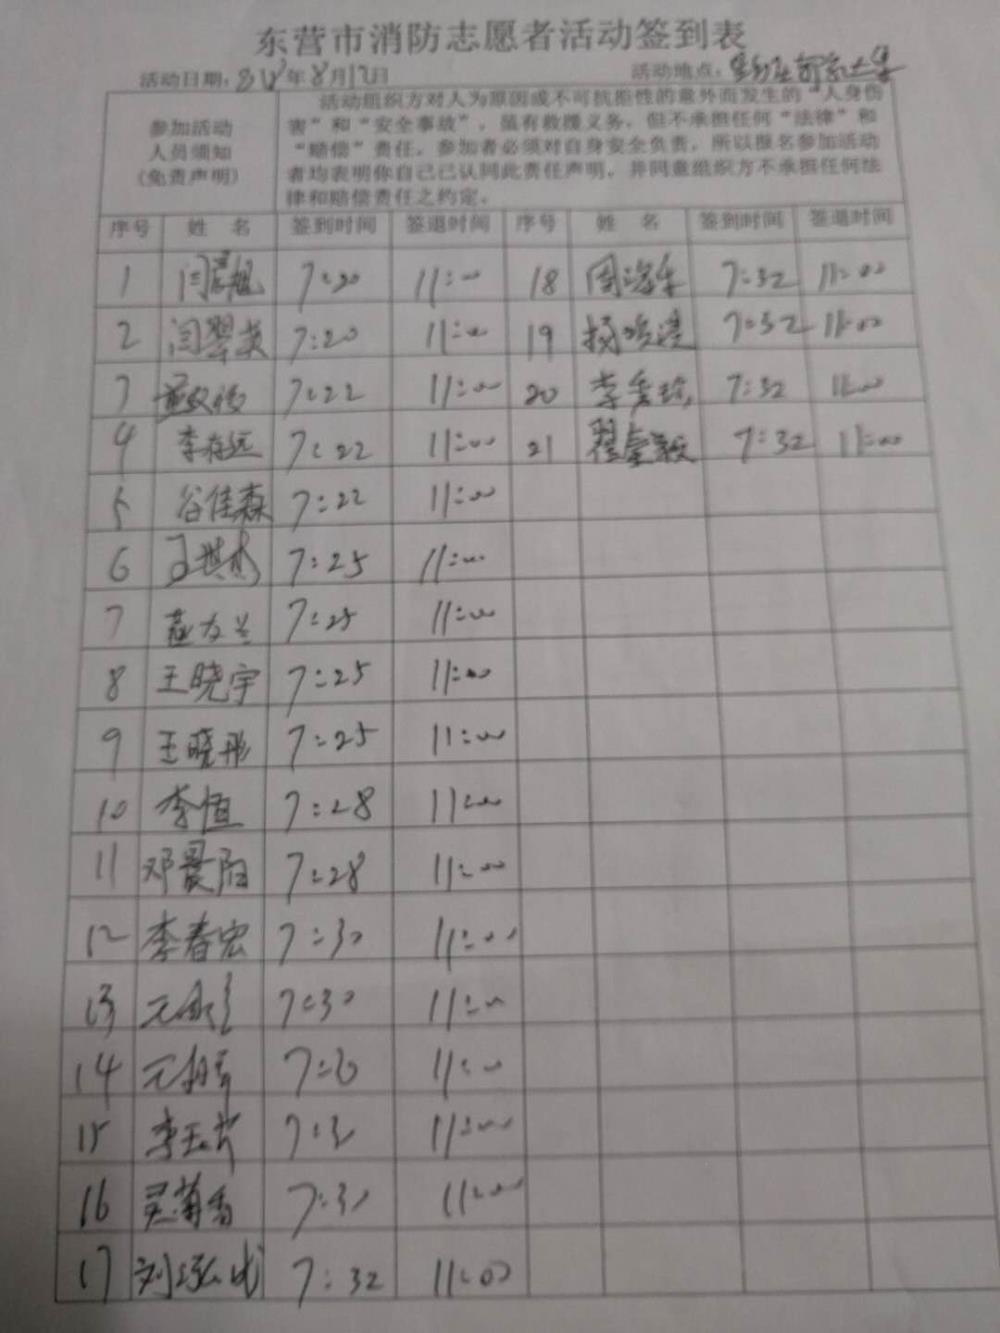 东营市消防志愿者活动签到表
活动日期: 年8月12日 活动地点:
参加活动
人员须知
(免责声明)
活动组织方对人为原因或不可抗拒性的意外而发生的“人身伤
害”和“安全事故”，虽有救援义务，但不承担任何“法律”和
“赔偿”责任，参加者必须对自身安全负责，所以报名参加活动
者均表明你自己已认同此责任声明，并同意组织方不承担任何法
律和赔偿责任之约定。
序号 姓 名 签到时间 签退时间 序号 姓 名 签到时间 签退时间
1 7:20 11:00 18 7:32 11:00
2 闫翠英 7:20 11:00 19 7:32 11:00
3 7:22 11:00 20 李秀珍 7:32 11:00
4 李存远 7:22 11:00 21 7:32 11:00
5 谷佳森 7:22 11:00
6 7:25 11:00
7 7:25 11:00
8 王晓宇 7:25 11:00
9 王晓彤 7:25 11:00
10 李恒 7:28 11:00
11 邓晨阳 7:28 11:00
12 李春宏 7:30 11:00
13 7:30 11:00
14 7:30 11:00
15 7:30 11:00
16 7:30 11:00
17 7:32 11:00